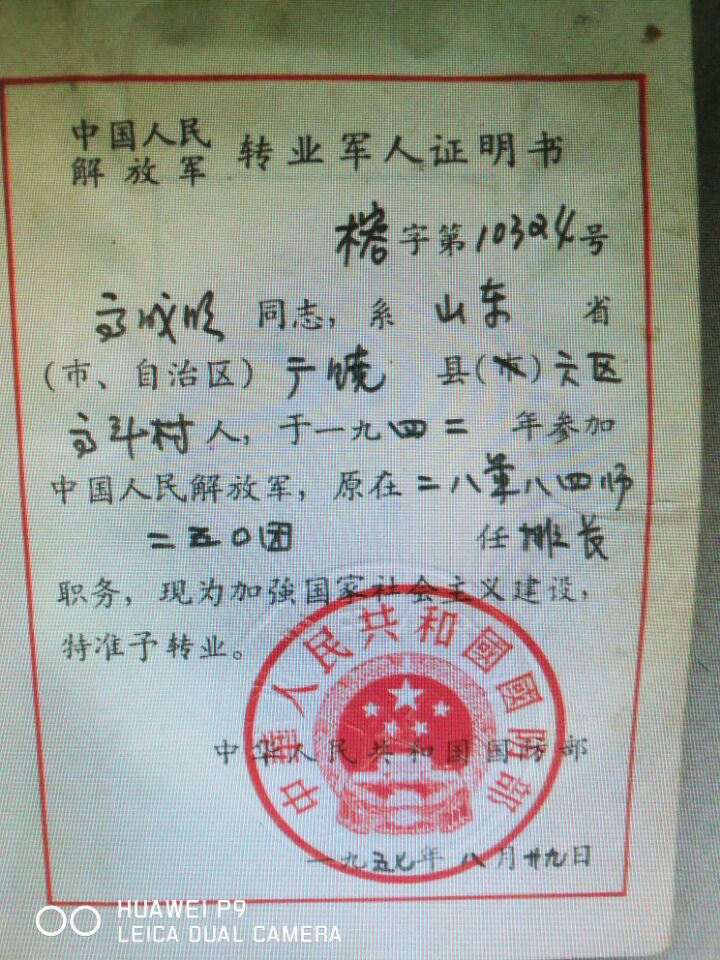 中国人民
解放军 转业军人证明书
榕字第10324号
高成顺 同志，系 山东 省
(市、自治区) 广饶 县(市) 六区
高斗村人，于一九四二 年参加
中国人民解放军，原在二八军八四师
二五〇团 任排长
职务，现为加强国家社会主义建设，
特准予转业。
中华人民共和国国防部
中华人民共和國國防部
一九五七年 八月廿九日
HUAWEI P9
LEICA DUAL CAMERA